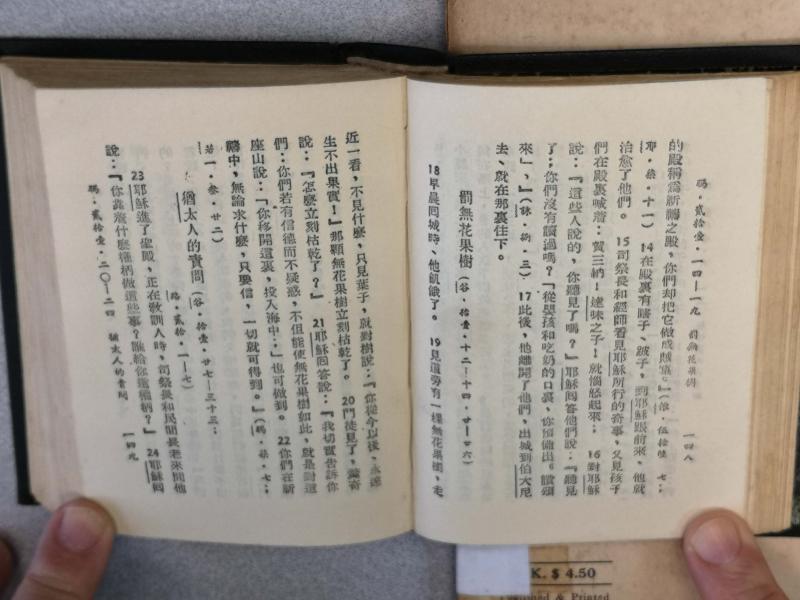 瑪・貳拾壹・一四—一九 罰無花果樹 一四八
的殿稱爲祈禱之殿，你們却把它做成賊窩。』（依・伍拾陸 七；
耶・柒・十一） 14 在殿裏有瞎子、跛子，到耶穌跟前來，他就
治愈了他們。 15 司祭長和經師看見耶穌所行的奇事，又見孩子
們在殿裏喊着：賀三納！達味之子！就惱怒起來； 16 對耶穌
說：『這些人說的，你聽見了嗎？』耶穌回答他們說：『聽見
了；你們沒有讀過嗎？「從嬰孩和吃奶的口裏，你預備出。讚頌
來」，』（詠・捌・三） 17 此後，他離開了他們，出城到伯大尼
去、就在那裏住下。
罰無花果樹（谷・拾壹・十二—十四・廿—廿六）
18 早晨回城時、他飢餓了。 19 見道旁有一棵無花果樹，走
近一看，不見什麼，只見葉子，就對樹說：『你從今以後，永遠
生不出果實！』那顆無花果樹立刻枯乾了。 20 門徒見了，驚奇
說：『怎麼立刻枯乾了？』 21 耶穌回答說：『我切實告訴你
們：你們若有信德而不疑惑，不但能使無花果樹如此，就是對這
座山說：「你移開這裏，投入海中：」也可做到。 22 你們在祈
禱中，無論求什麼，只要信，一切就可得到。』（瑪・柒・七；
若一・叁・廿二）
猶太人的責問（谷・拾壹・廿七—三十三；
路・貳拾・一—七）
23 耶穌進了聖殿，正在教訓人時，司祭長和民間長老來問他
說：『你靠着什麼權柄做這些事？誰給你這種權柄？』 24 耶穌回
瑪・貳拾壹・二〇—二四 猶太人的責問 一四九
K. $ 4.50
& Printed